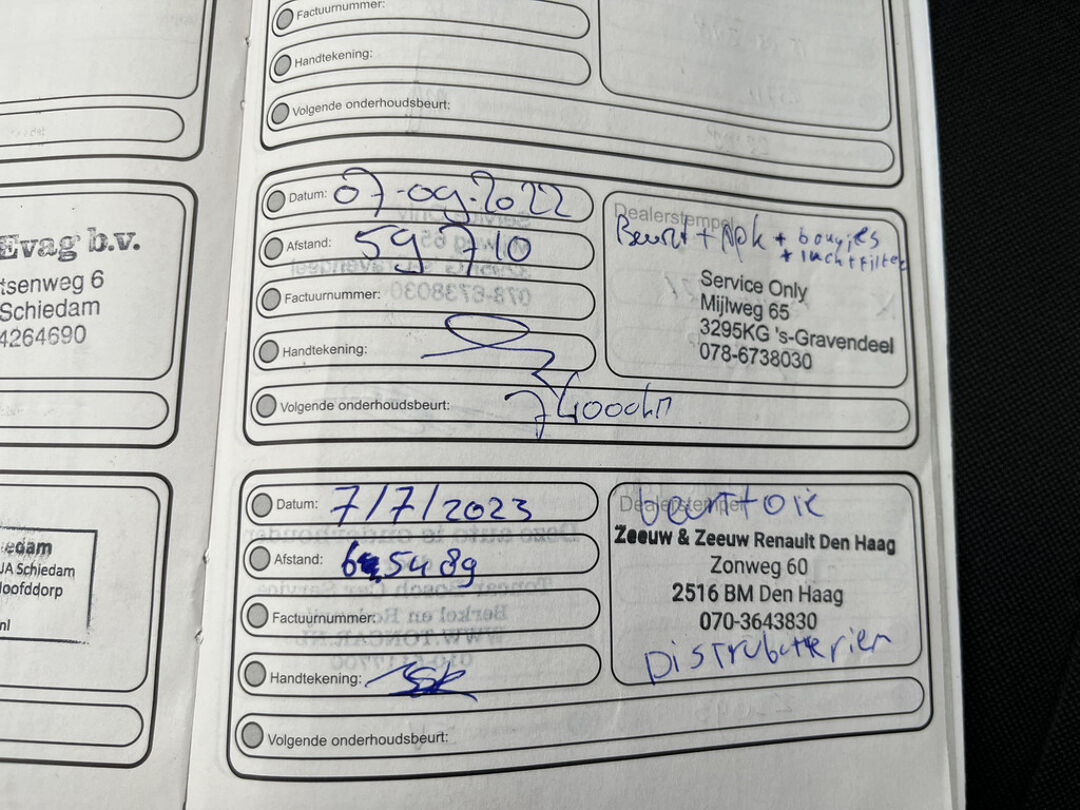 Evag b.v.
tsenweg 6
Schiedam
4264690
edam
JA Schiedam
loofddorp
nl
Factuurnummer:
Handtekening:
Volgende onderhoudsbeurt:
Datum: 07-09-2022
Afstand: 59710
Factuurnummer:
Handtekening:
Volgende onderhoudsbeurt: 74000km
Dealerstempel
Beurt + Apk + bougies
+ luchtfilter
Service Only
Mijlweg 65
3295KG 's-Gravendeel
078-6738030
Datum: 7/7/2023
Afstand:
Factuurnummer:
Handtekening:
Volgende onderhoudsbeurt:
Dealerstempel
beurt olie
Zeeuw & Zeeuw Renault Den Haag
Zonweg 60
2516 BM Den Haag
070-3643830
Distrubutterien